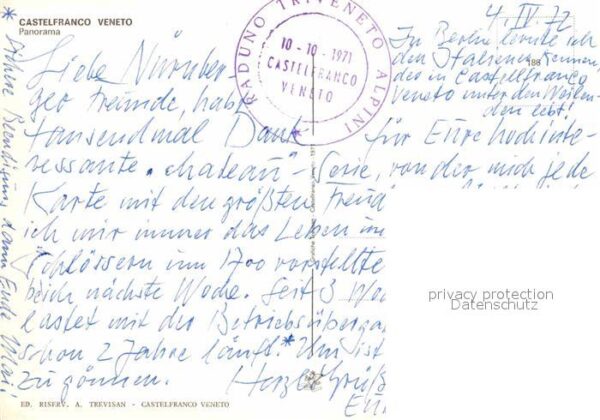 CASTELFRANCO VENETO
Panorama
RADUNO TRIVENETO ALPINI
10-10-1971
CASTELFRANCO
VENETO
4. IV. 72
In Berlin lernte ich
den Italiener kennen,
der in Castelfranco
Veneto unter den
den lebt!
188
Liebe Nürnber-
ger Freunde, habt
tausendmal Dank für Eure hochinte-
ressante "chateau"-Serie, von der mich jede
Karte mit den größten Freud
ich mir immer das Leben in
Schlössern um 1700 vorstellte
reich nächste Woche. Seit 3 Wo
lastet mit der Betriebsüberga
schon 2 Jahre läuft.* Ihm ist
zu gönnen. Herzl. Grüß
* dann Ende Mai!
privacy protection
Datenschutz
ED. RISERV. A. TREVISAN - CASTELFRANCO VENETO